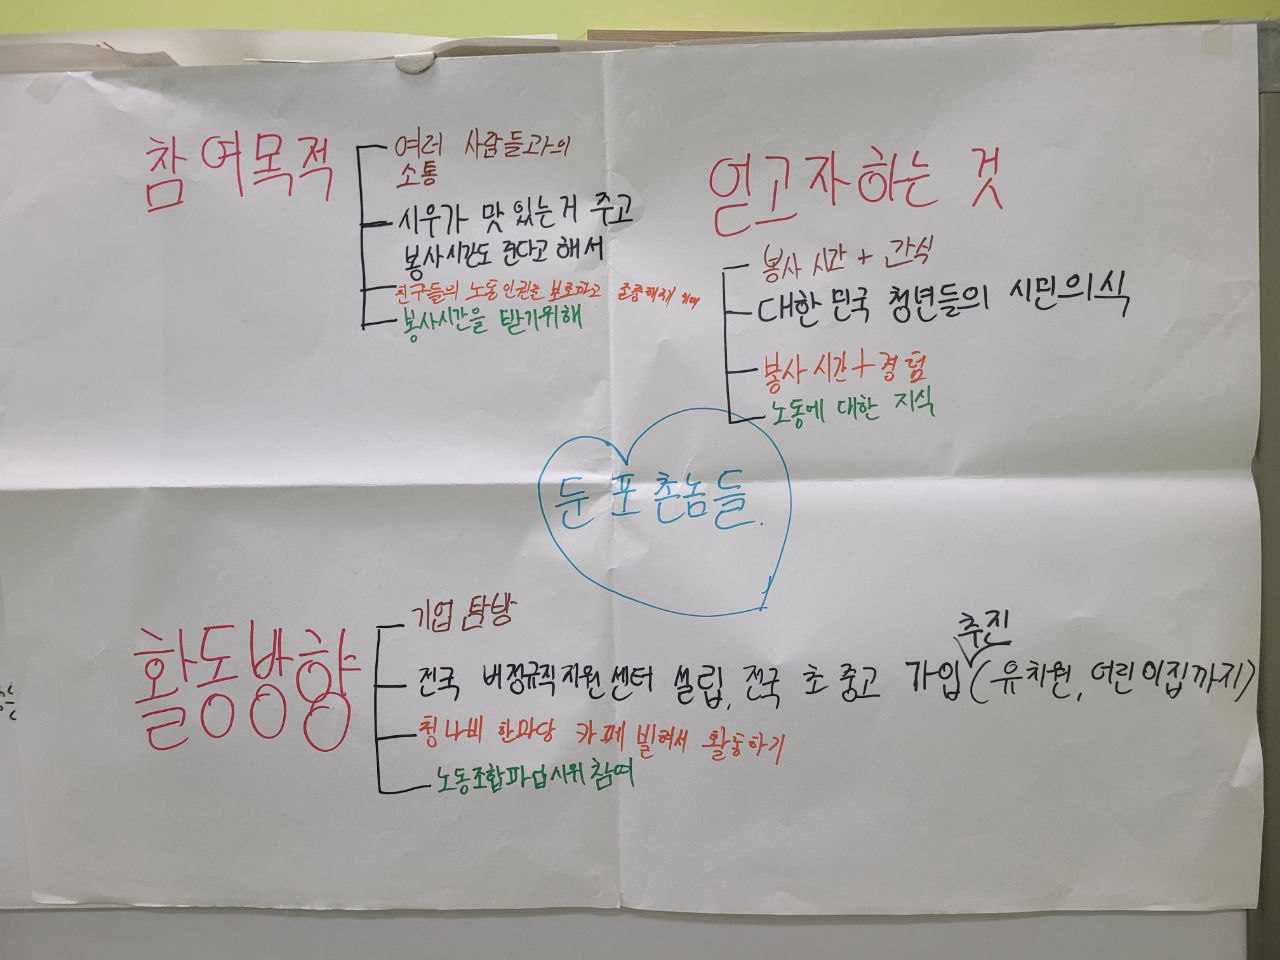 참여목적
여러 사람들과의
소통
시우가 맛있는거 주고
봉사시간도 준다고 해서
친구들의 노동인권을 보호하고 존중해주기 위해
봉사시간을 받기위해
얻고자하는 것
봉사 시간 + 간식
대한민국 청년들의 시민의식
봉사 시간 + 경험
노동에 대한 지식
둔포촌놈들.
활동방향
기업 탐방
추진
전국 비정규직지원센터 설립, 전국 초중고 가입 (유치원, 어린이집까지)
청나비 한마당 카페 빌려서 활동하기
노동조합파업시위참여